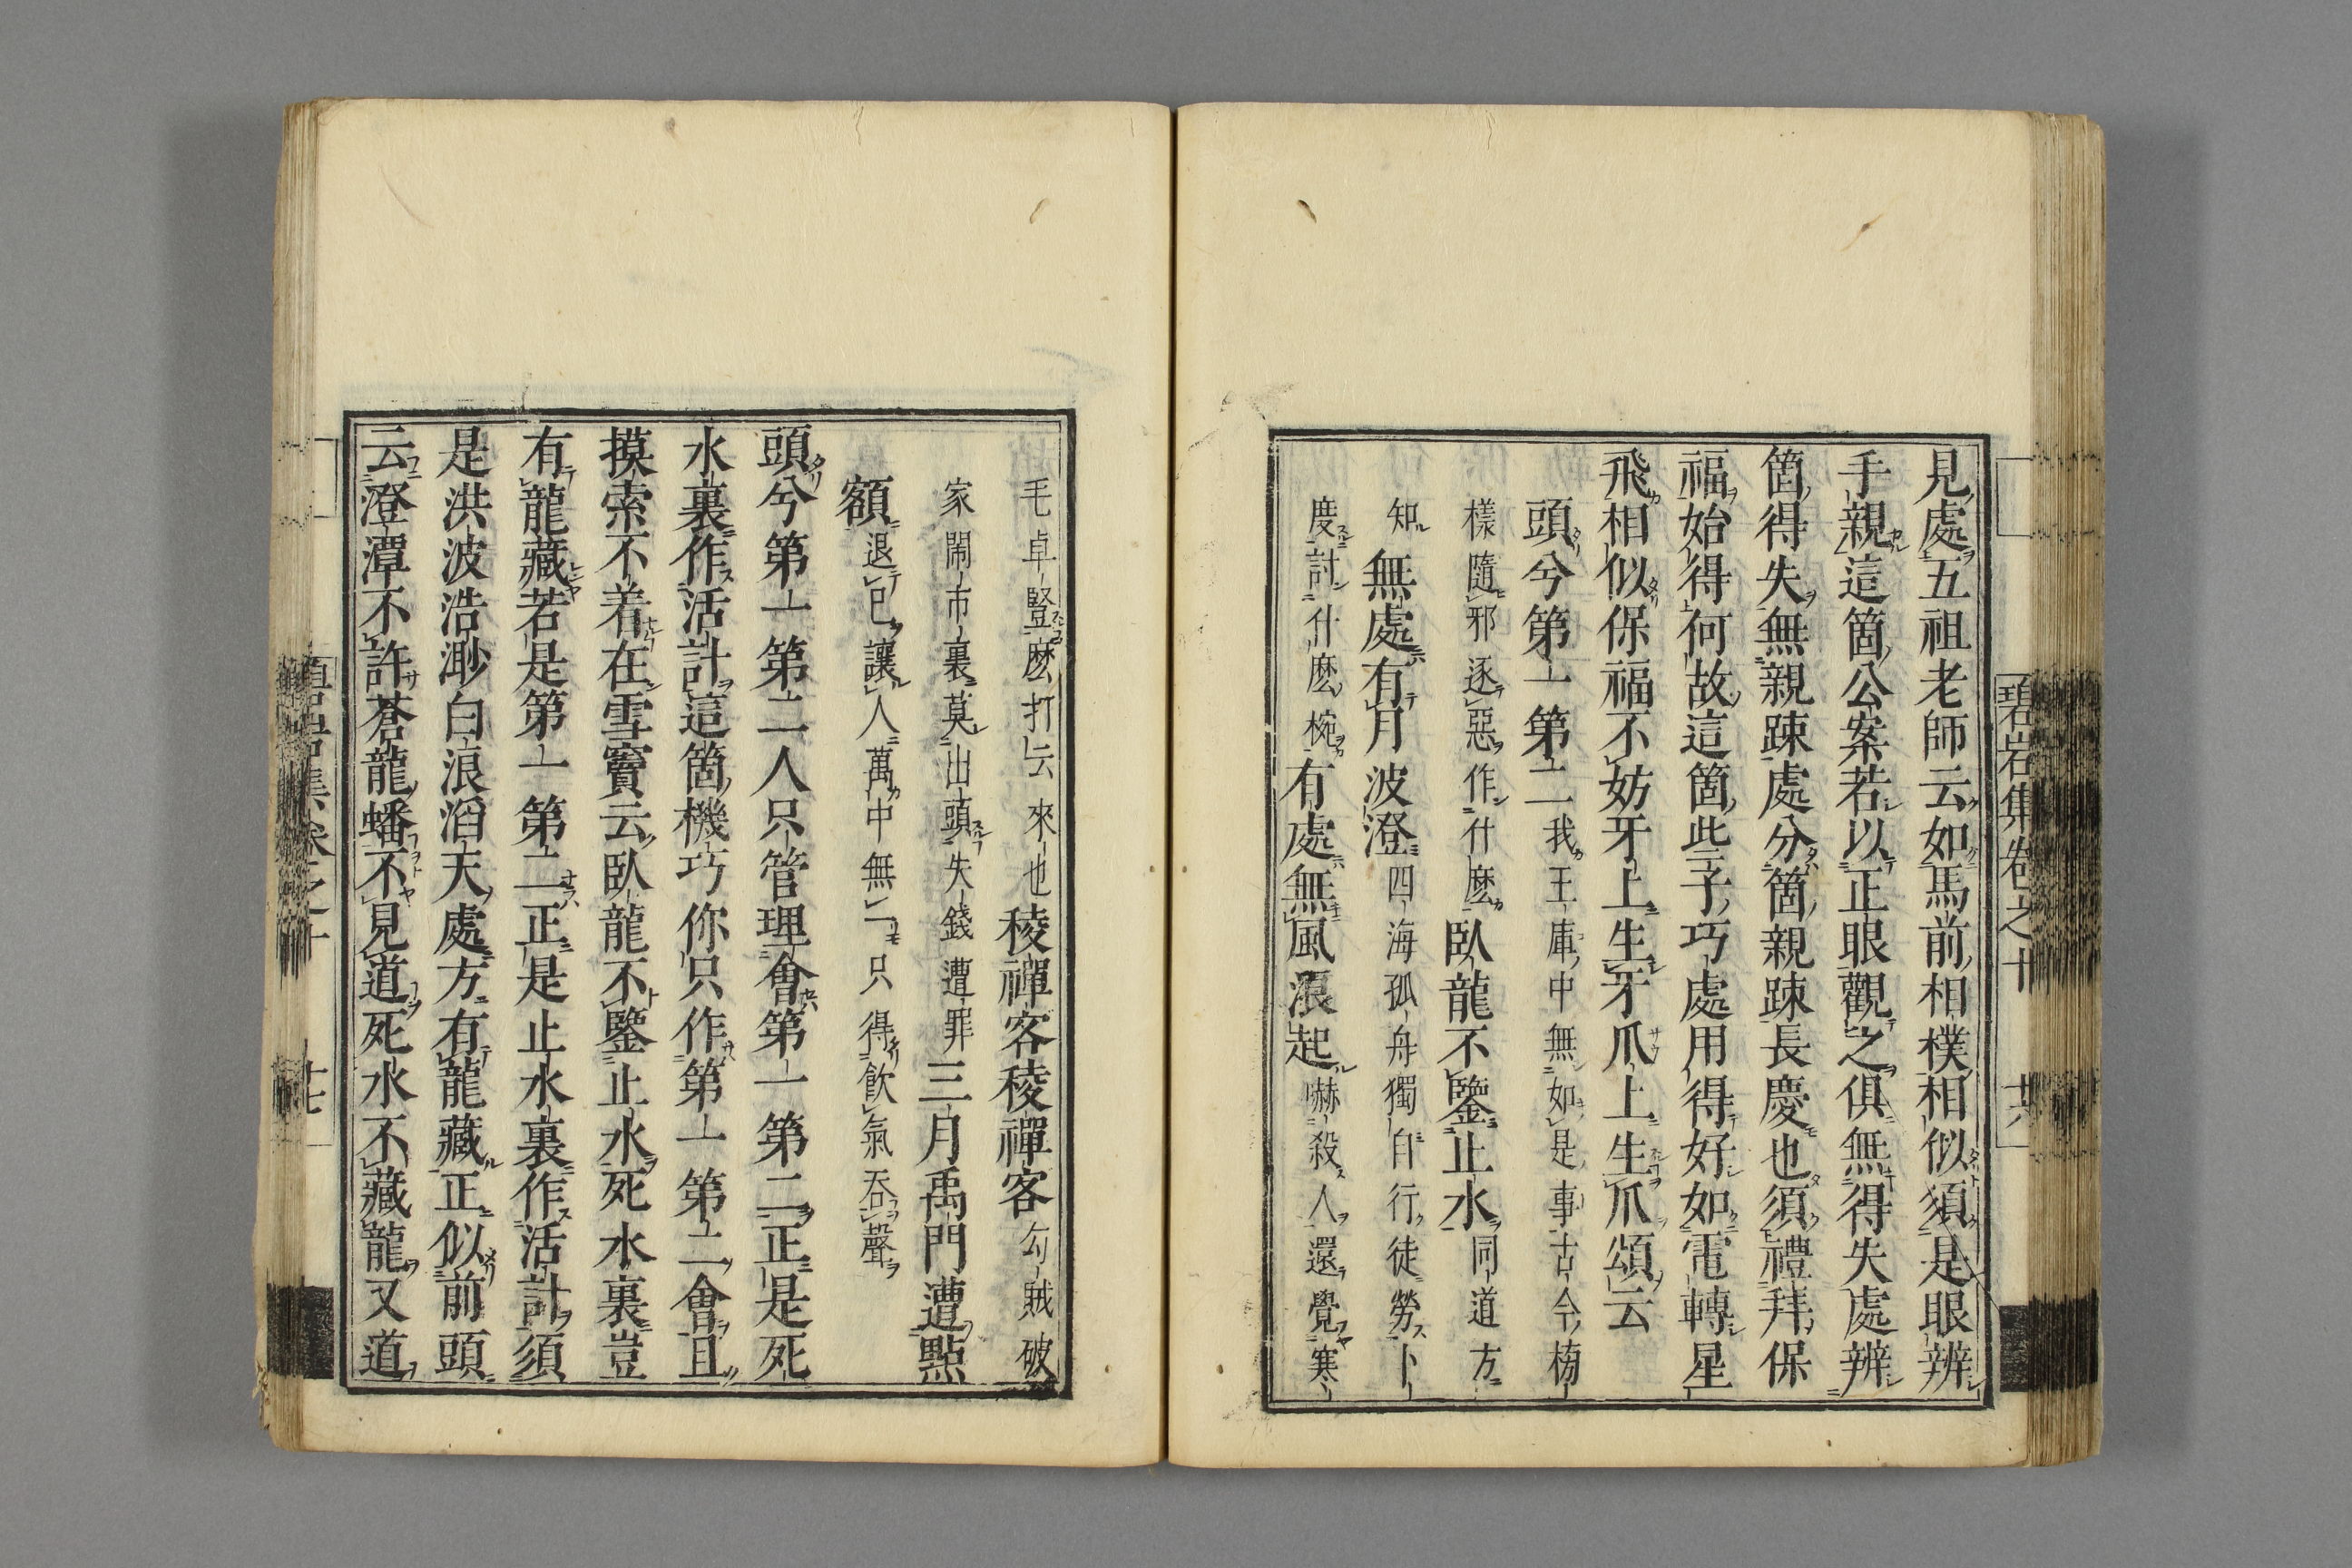 見處五祖老師云如馬前相樸相似須是眼辨
手親這箇公案若以正眼觀之俱無得失處辨
箇得失無親踈處分箇親踈長慶也須禮拜保
福始得何故這箇些子巧處用得好如電轉星
飛相似保福不妨牙上生牙爪上生爪頌云
頭兮第一第二我王庫中無如是事古今榜
樣隨邪逐惡作什麼臥龍不鑒止水同道方
知無處有月波澄四海孤舟獨自行徒勞卜
度討什麼椀有處無風浪起嚇殺人還覺寒
碧岩集卷之十
毛卓豎麼打云來也稜禪客稜禪客勾賊破
家鬧市裏莫出頭失錢遭罪三月禹門遭點
額退已讓人萬中無一只得飲氣吞聲
頭兮第一第二人只管理會第一第二正是死
水裏作活計這箇機巧你只作第一第二會且
摸索不着在雪竇云臥龍不鑒止水死水裏豈
有龍藏若是第一第二正是止水裏作活計須
是洪波浩渺白浪滔天處方有龍藏正似前頭
云澄潭不許蒼龍蟠不見道死水不藏龍又道